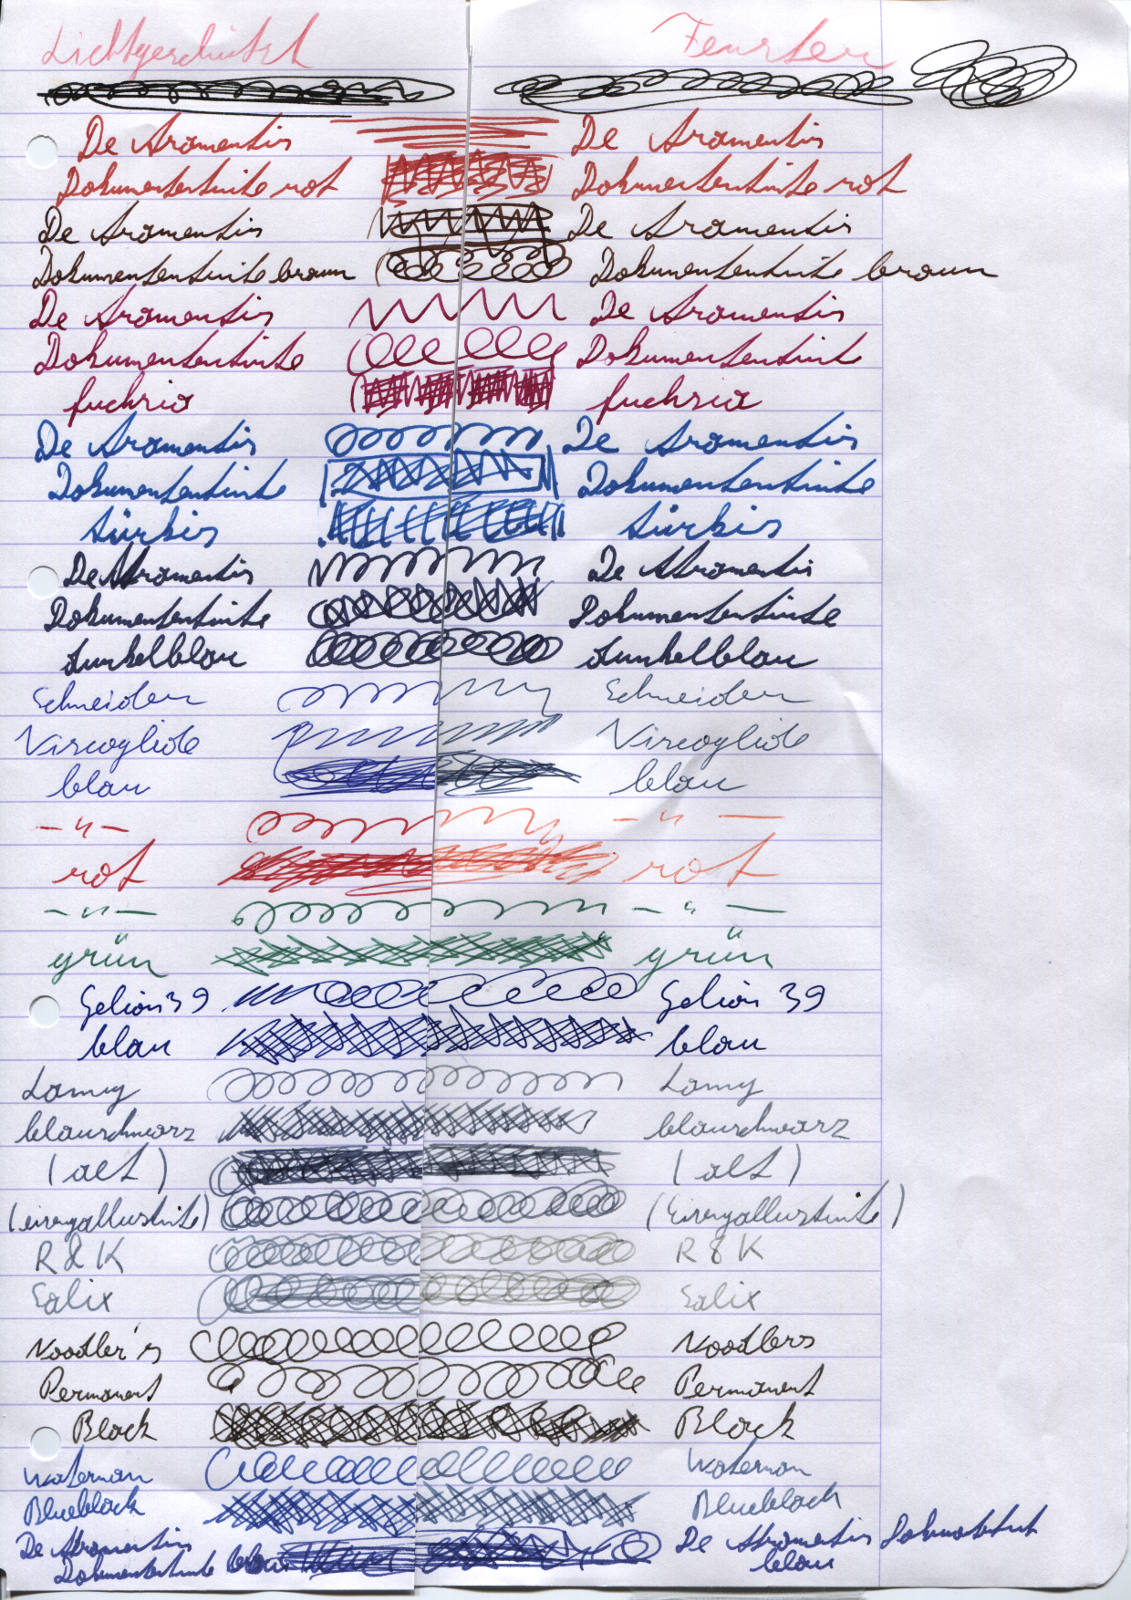 Lichtgeschützt Fenster
De Atramentis De Atramentis
Dokumententinte rot Dokumententinte rot
De Atramentis De Atramentis
Dokumententinte braun Dokumententinte braun
De Atramentis De Atramentis
Dokumententinte Dokumententinte
fuchsia fuchsia
De Atramentis De Atramentis
Dokumententinte Dokumententinte
türkis türkis
De Atramentis De Atramentis
Dokumententinte Dokumententinte
dunkelblau dunkelblau
Schneider Schneider
Viscoglide Viscoglide
blau blau
–"– –"–
rot rot
–"– –"–
grün grün
Gelion 39 Gelion 39
blau blau
Lamy Lamy
blauschwarz blauschwarz
(alt) (alt)
(Eisengallustinte) (Eisengallustinte)
R&K R&K
Salix Salix
Noodler's Noodlers
Permanent Permanent
Black Black
Waterman Waterman
Blueblack Blueblack
De Atramentis De Atramentis
Dokumententinte blau blau